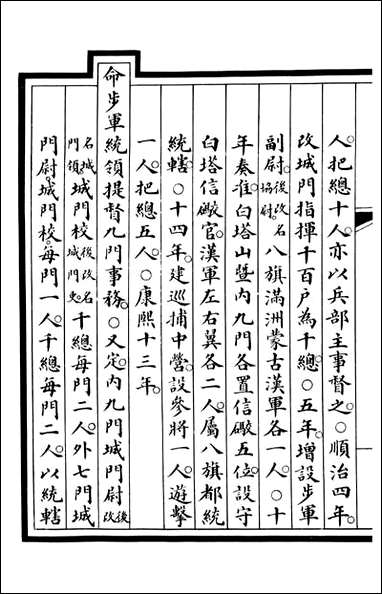 人把總十人亦以兵部主事督之○順治四年
改城門指揮千百戶為千總○五年增設步軍
副尉後改名協尉八旗滿洲蒙古漢軍各一人○十
年奏准白塔山暨內九門各置信礮五位設守
白塔信礮官漢軍左右翼各二人屬八旗都統
統轄○十四年建巡捕中營設參將一人遊擊
一人把總五人○康熙十三年
命步軍統領提督九門事務○又定內九門城門尉後改
名城門領城門校後改名城門吏千總每門二人外七門城
門尉城門校每門一人千總每門二人以統轄